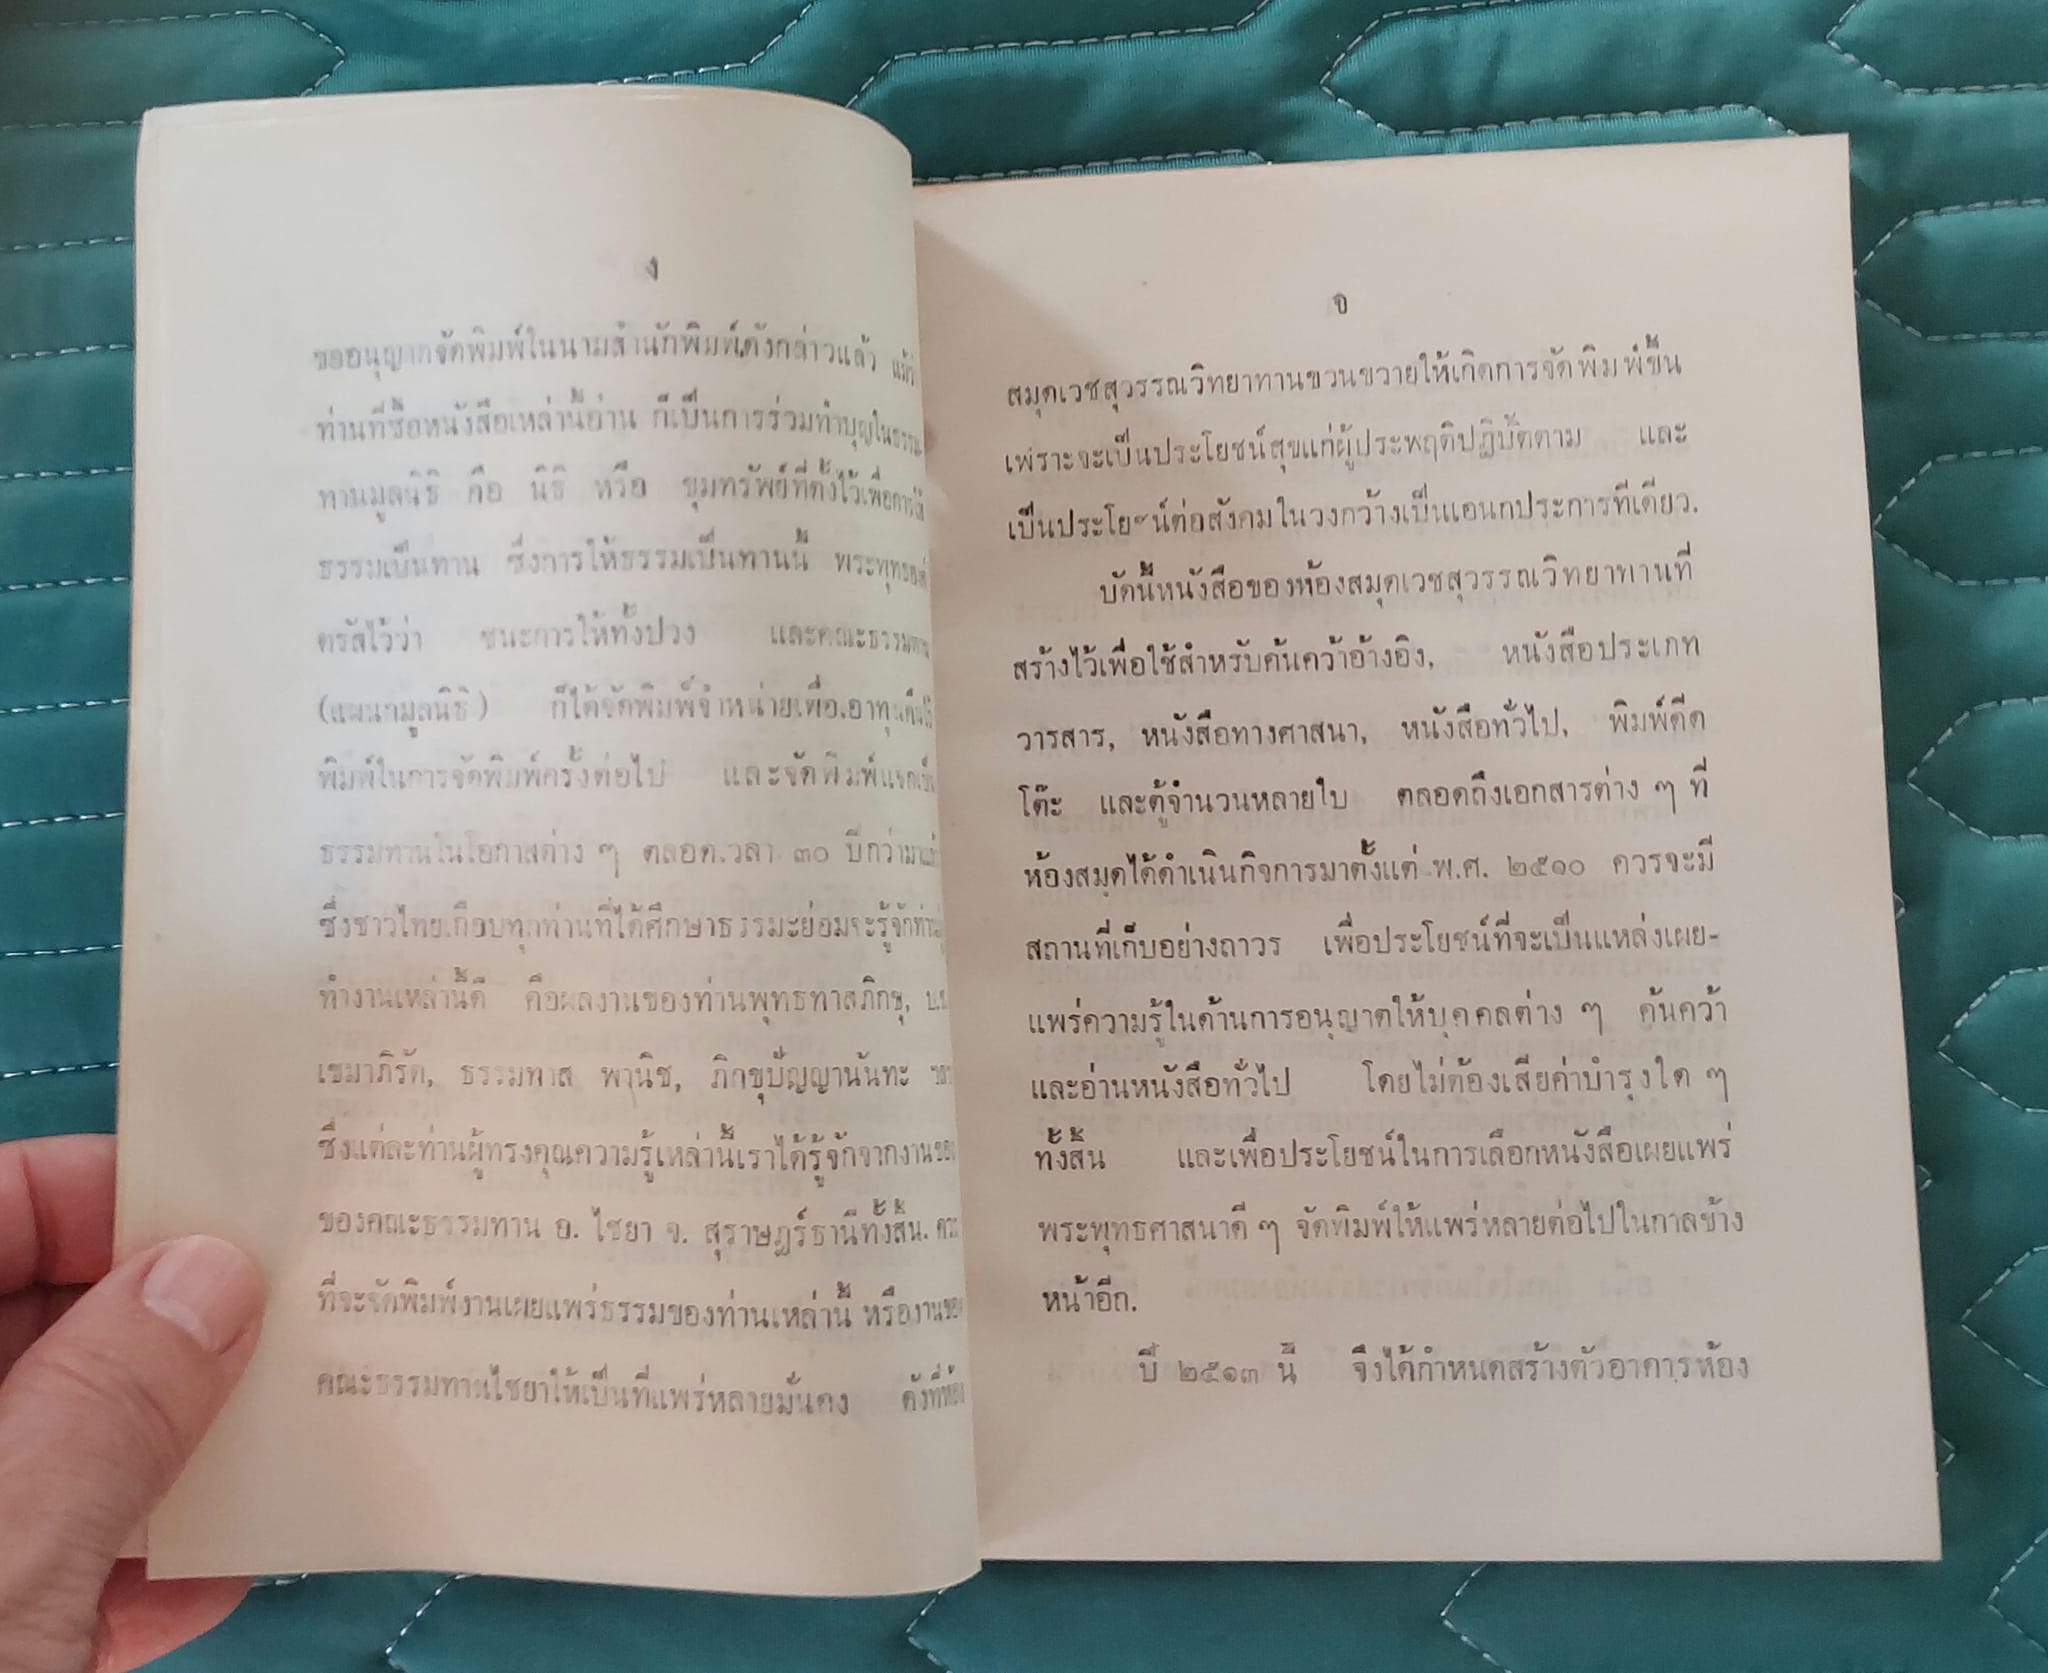 ง
ขออนุญาตจัดพิมพ์ในนามสำนักพิมพ์ดังกล่าวแล้ว
ท่านที่ซื้อหนังสือเหล่านี้อ่าน ก็เป็นการร่วมทำบุญในธรรม
ทานมูลนิธิ คือ นิธิ หรือ ขุมทรัพย์ที่ตั้งไว้เพื่อการให้
ธรรมเป็นทาน ซึ่งการให้ธรรมเป็นทานนี้ พระพุทธองค์
ตรัสไว้ว่า ชนะการให้ทั้งปวง และคณะธรรมทาน
(แผนกมูลนิธิ) ก็ได้จัดพิมพ์จำหน่ายเพื่อเอาทุนคืนไว้
พิมพ์ในการจัดพิมพ์ครั้งต่อไป และจัดพิมพ์แจกเป็น
ธรรมทานในโอกาสต่าง ๆ ตลอดเวลา ๓๐ ปีกว่ามาแล้ว
ซึ่งชาวไทยเกือบทุกท่านที่ได้ศึกษาธรรมะย่อมจะรู้จัก
ทำงานเหล่านี้ดี คือผลงานของท่านพุทธทาสภิกขุ, บ.ช.
เขมาภิรัต, ธรรมทาส พานิช, ภิกขุปัญญานันทะ
ซึ่งแต่ละท่านผู้ทรงคุณความรู้เหล่านี้เราได้รู้จักจากงานของ
ของคณะธรรมทาน อ. ไชยา จ. สุราษฎร์ธานีทั้งสิ้น.
ที่จะจัดพิมพ์งานเผยแพร่ธรรมของท่านเหล่านี้ หรืองานของ
คณะธรรมทานไชยาให้เป็นที่แพร่หลายมั่นคง ดังที่ห้อง
จ
สมุดเวชสุวรรณวิทยาทานขวนขวายให้เกิดการจัดพิมพ์ขึ้น
เพราะจะเป็นประโยชน์สุขแก่ผู้ประพฤติปฏิบัติตาม และ
เป็นประโยชน์ต่อสังคมในวงกว้างเป็นเอนกประการทีเดียว.
บัดนี้หนังสือของห้องสมุดเวชสุวรรณวิทยาทานที่
สร้างไว้เพื่อใช้สำหรับค้นคว้าอ้างอิง, หนังสือประเภท
วารสาร, หนังสือทางศาสนา, หนังสือทั่วไป, พิมพ์ดีด
โต๊ะ และตู้จำนวนหลายใบ ตลอดถึงเอกสารต่าง ๆ ที่
ห้องสมุดได้ดำเนินกิจการมาตั้งแต่ พ.ศ. ๒๕๑๐ ควรจะมี
สถานที่เก็บอย่างถาวร เพื่อประโยชน์ที่จะเป็นแหล่งเผย-
แพร่ความรู้ในด้านการอนุญาตให้บุคคลต่าง ๆ ค้นคว้า
และอ่านหนังสือทั่วไป โดยไม่ต้องเสียค่าบำรุงใด ๆ
ทั้งสิ้น และเพื่อประโยชน์ในการเลือกหนังสือเผยแพร่
พระพุทธศาสนาดี ๆ จัดพิมพ์ให้แพร่หลายต่อไปในกาลข้าง
หน้าอีก.
ปี ๒๕๑๓ นี้ จึงได้กำหนดสร้างตัวอาคารห้อง